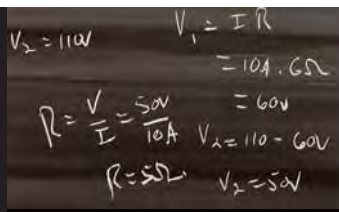 V₂ = 110V
V₁ = I R
= 10A . 6Ω
= 60V
R = V/I = 50V/10A
V₂ = 110 - 60V
R = 5Ω
V₂ = 50V